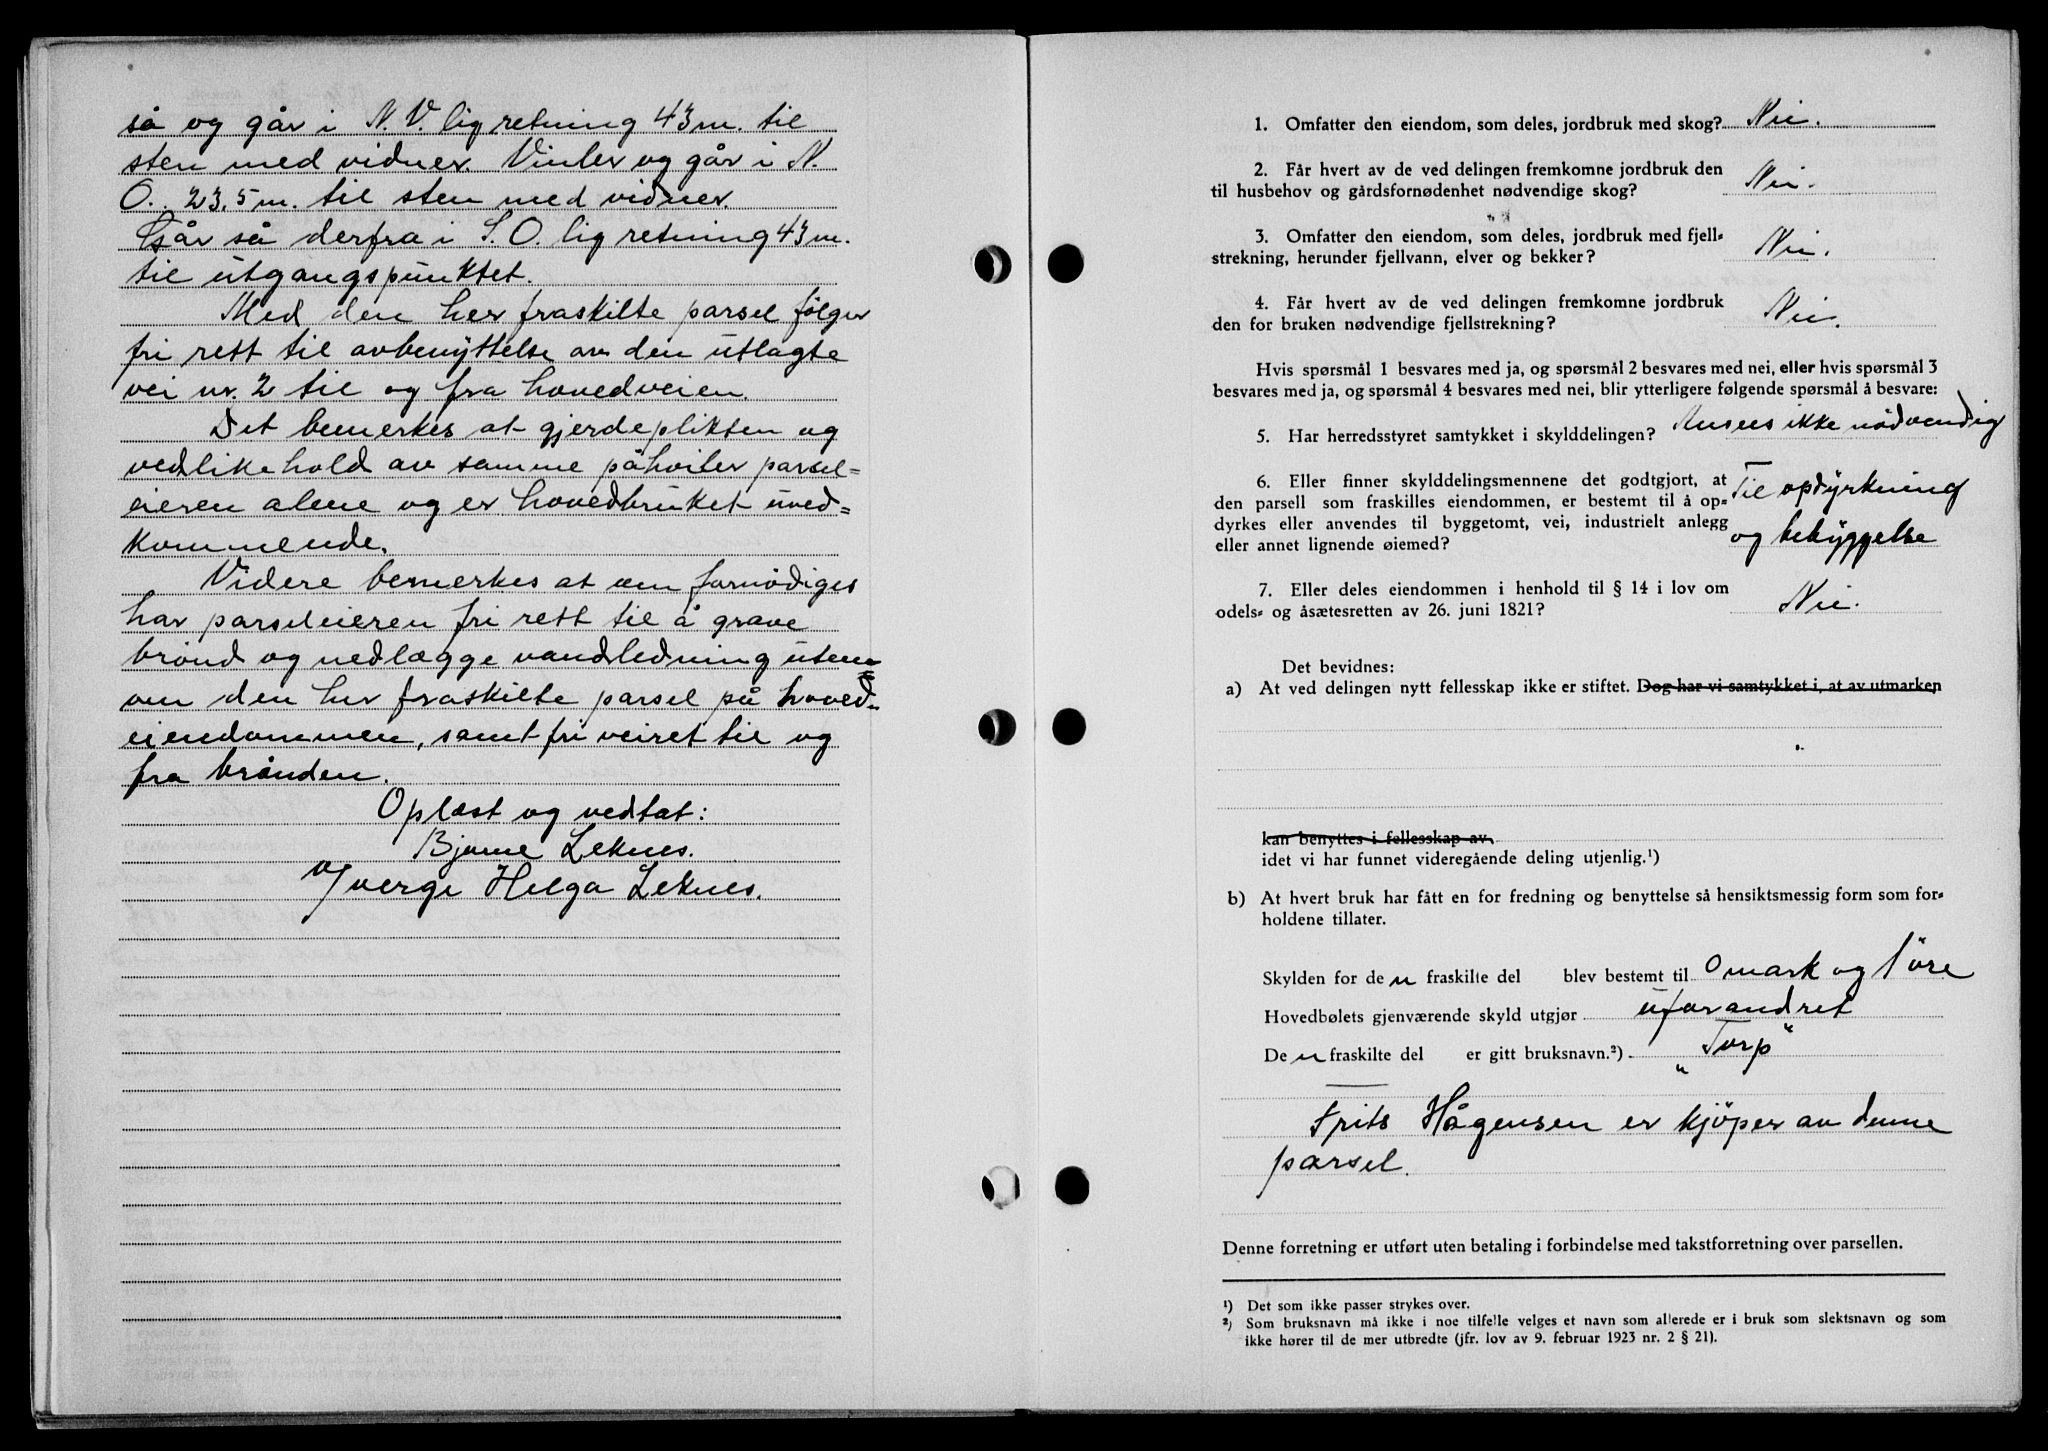 så og går i N. V. lig retning 43 m. til
sten med vidner. Vinler og går i N.
O. 23,5 m. til sten med vidner.
Går så derfra i S. O. lig retning 43 m.
til utgangspunktet.
Med den her fraskilte parsel følger
fri rett til avbenyttelse av den utlagte
vei nr. 2 til og fra hovedveien.
Det bemerkes at gjerdeplikten og
vedlikehold av samme påhviler parsel=
eieren alene og er hovedbruket uved=
kommende.
Videre bemerkes at om fornödiges
har parseleieren fri rett til å grave
brönd og nedlægge vandledning uten=
om den her fraskilte parsel på hoved=
eiendommen, samt fri veiret til og
fra brönden.
Oplæst og vedtat:
Bjarne Leknes.
Verge Helga Leknes.
1. Omfatter den eiendom, som deles, jordbruk med skog? Nei.
2. Får hvert av de ved delingen fremkomne jordbruk den
til husbehov og gårdsfornødenhet nødvendige skog? Nei.
3. Omfatter den eiendom, som deles, jordbruk med fjell=
strekning, herunder fjellvann, elver og bekker? Nei.
4. Får hvert av de ved delingen fremkomne jordbruk
den for bruken nødvendige fjellstrekning? Nei.
Hvis spørsmål 1 besvares med ja, og spørsmål 2 besvares med nei, eller hvis spørsmål 3
besvares med ja, og spørsmål 4 besvares med nei, blir ytterligere følgende spørsmål å besvare:
5. Har herredsstyret samtykket i skylddelingen? Ansees ikke nödvendig
6. Eller finner skylddelingsmennene det godtgjort, at
den parsell som fraskilles eiendommen, er bestemt til å op=
dyrkes eller anvendes til byggetomt, vei, industrielt anlegg
eller annet lignende øiemed? Til opdyrkning
og bebyggelse
7. Eller deles eiendommen i henhold til § 14 i lov om
odels= og åsætesretten av 26. juni 1821? Nei.
Det bevidnes:
a) At ved delingen nytt fellesskap ikke er stiftet. Dog har vi samtykket i, at av utmarken
kan benyttes i fellesskap av,
idet vi har funnet videregående deling utjenlig.¹)
b) At hvert bruk har fått en for fredning og benyttelse så hensiktsmessig form som for=
holdene tillater.
Skylden for de n fraskilte del blev bestemt til 0 mark og 1 öre
Hovedbølets gjenværende skyld utgjør uforandret
De n fraskilte del er gitt bruksnavn.²) „Torp"
Frits Hågensen er kjöper av denne
parsel.
Denne forretning er utført uten betaling i forbindelse med takstforretning over parsellen.
¹) Det som ikke passer strykes over.
²) Som bruksnavn må ikke i noe tilfelle velges et navn som allerede er i bruk som slektsnavn og som
ikke hører til de mer utbredte (jfr. lov av 9. februar 1923 nr. 2 § 21).